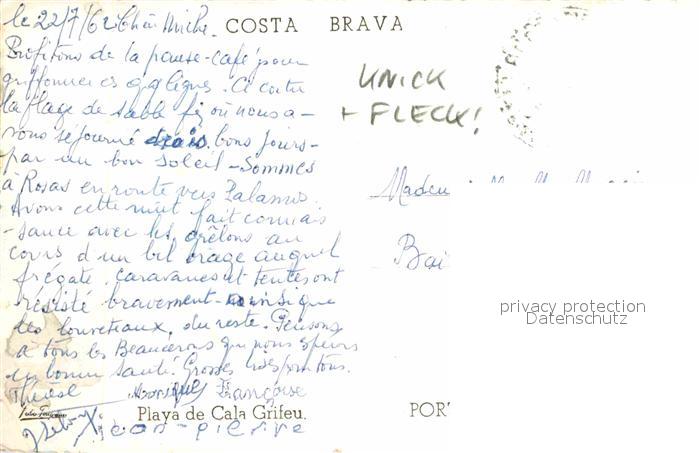 le 22/7/62 Chère Miche.
COSTA BRAVA
Profitons de la pause-café pour
griffonner ces qq lignes. Ci contre
la plage de sable fin où nous a-
vons séjourné trois bons jours-
par un bon soleil - Sommes
à Rosas en route vers Palamos.
Avons cette nuit fait connais
-sance avec les grêlons au
cours d'un bel orage auquel
frégate, caravanes et tentes ont
résisté bravement- ainsi que
les louveteaux, du reste. Pensons
à tous les Beaucerons que nous espérons
en bonne santé. Grosses bises
Thérèse Monique Françoise
Jean-pierre
Playa de Cala Grifeu.
POR
KNICK
+ FLECK!
Madem
Bai
privacy protection
Datenschutz